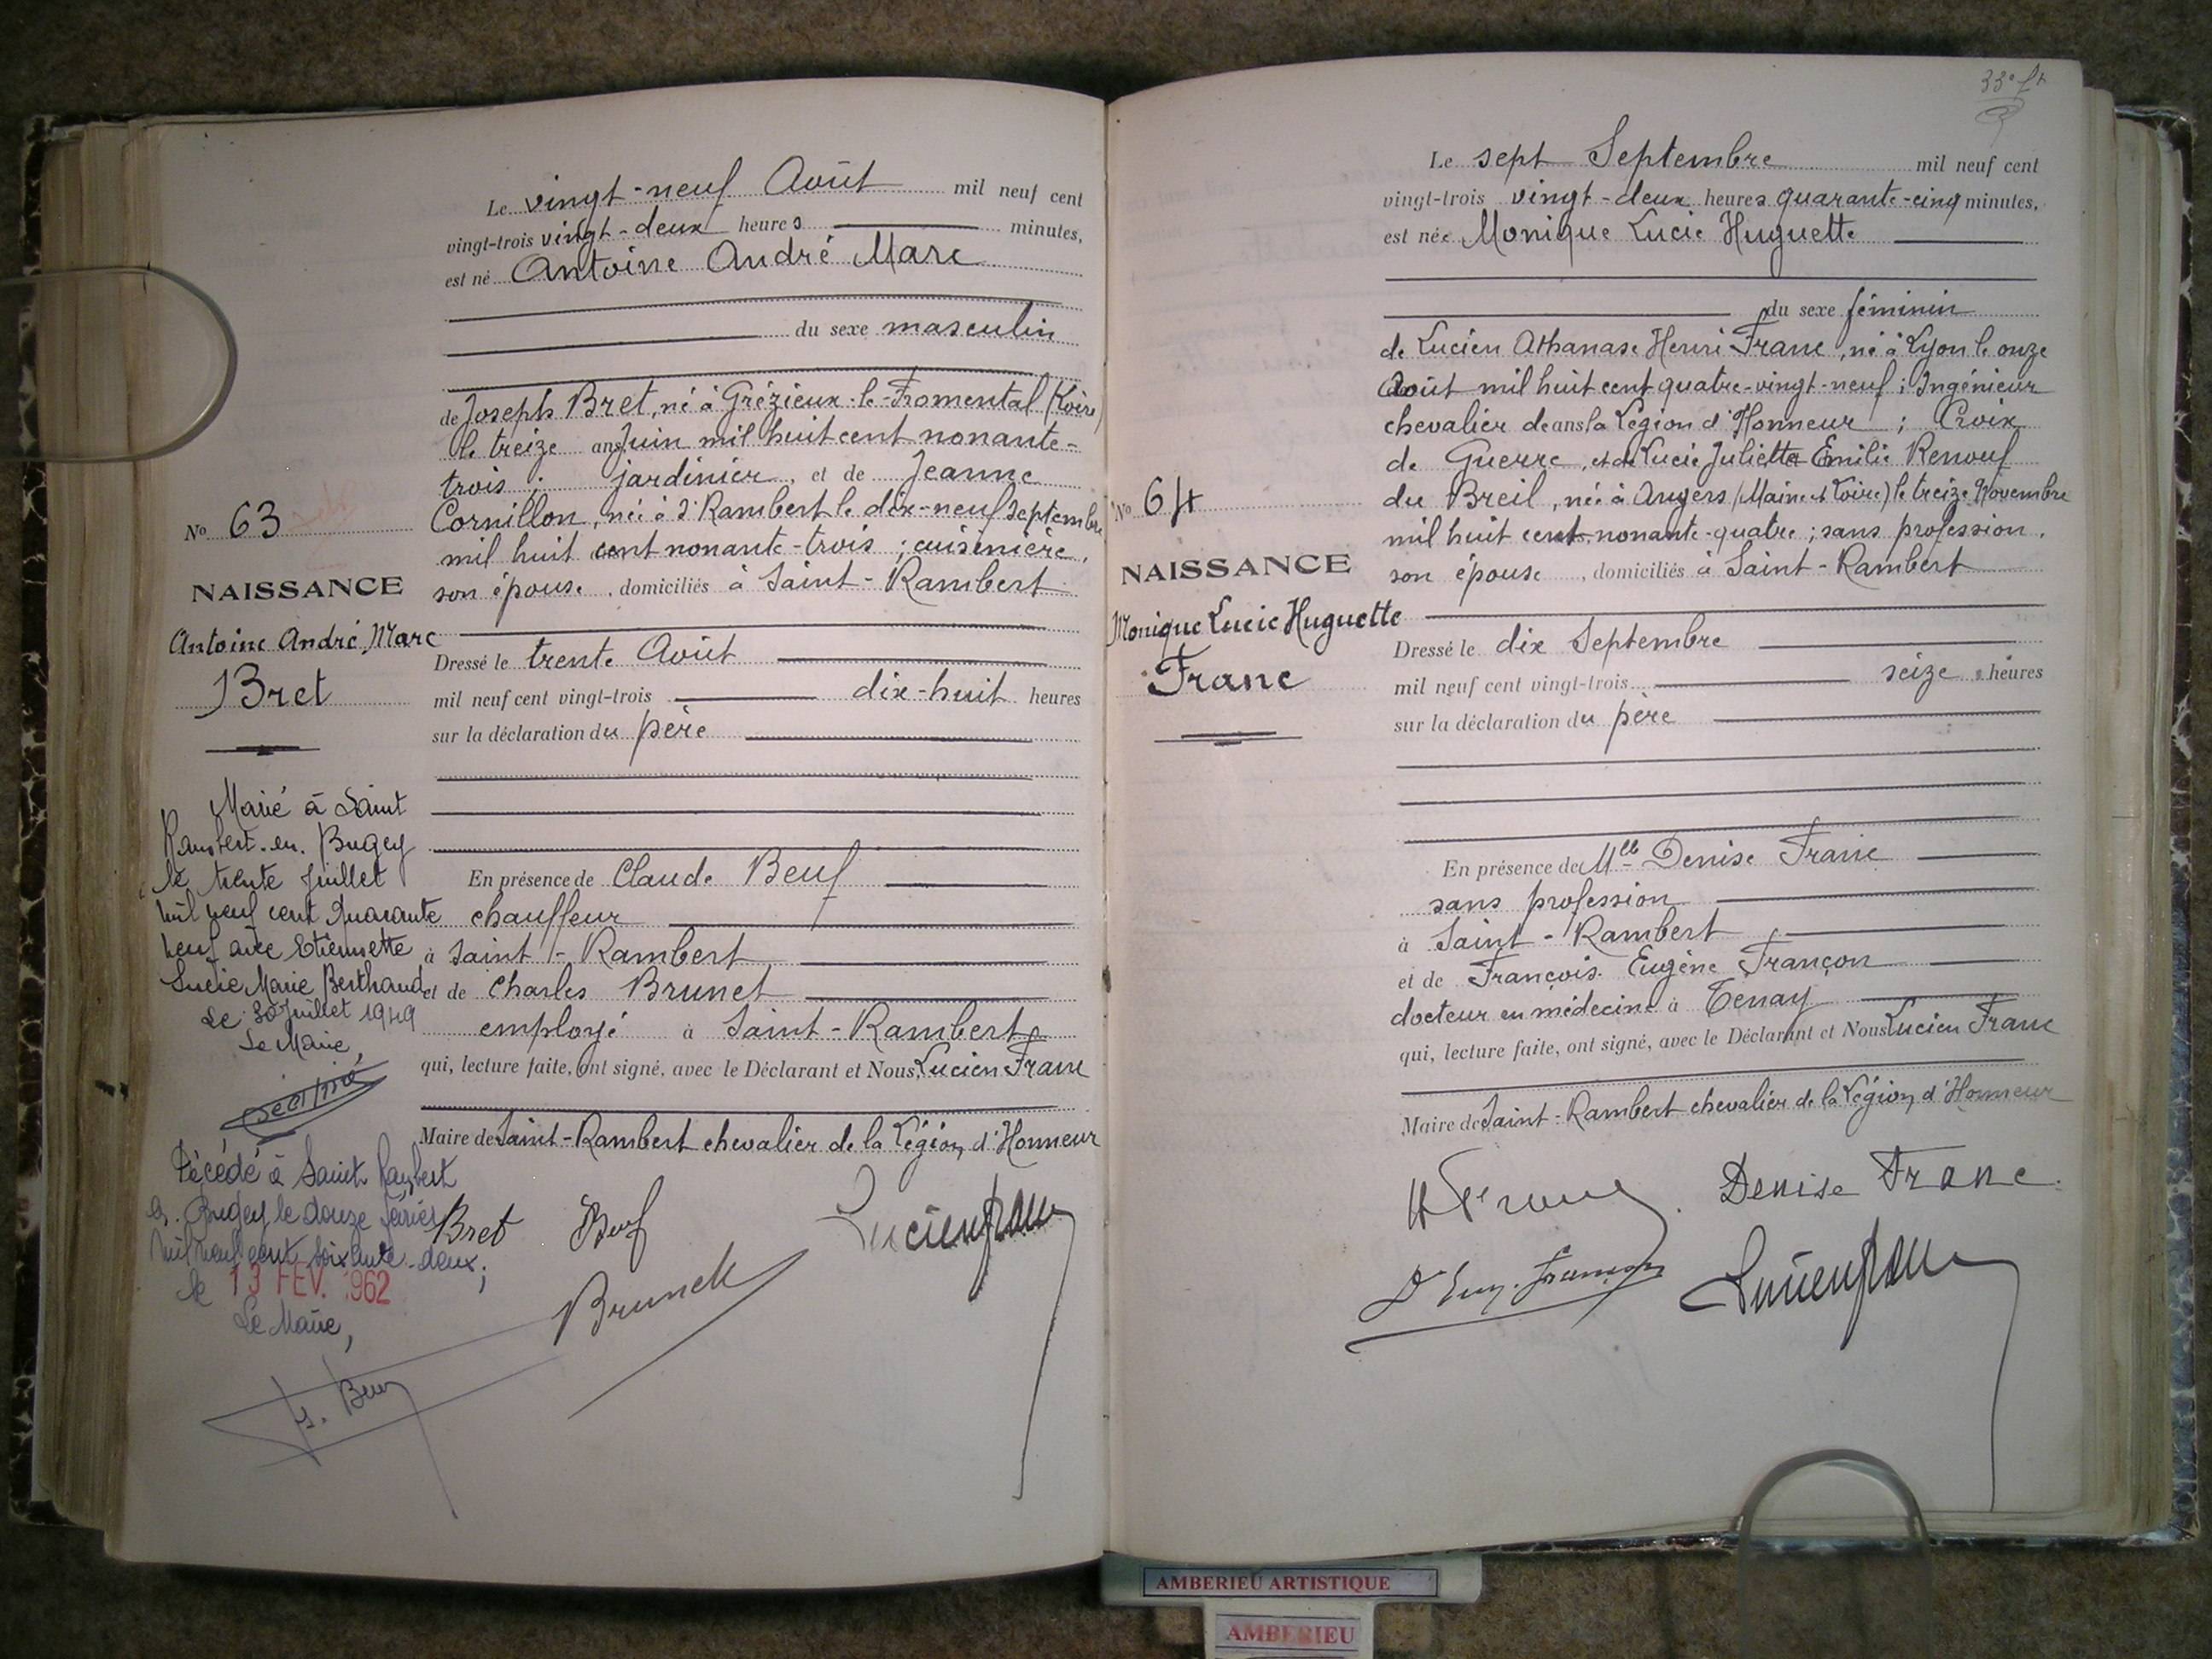 Le vingt-neuf Août mil neuf cent
vingt-trois vingt-deux heures minutes,
est né Antoine André Marc
du sexe masculin
de Joseph Bret, né à Grézieux-le-Fromental (Loire)
le treize Juin mil huit cent nonante-
trois ; jardinier, et de Jeanne
Cornillon, née à St Rambert le dix-neuf Septembre
mil huit cent nonante-trois ; cuisinière,
son épouse, domiciliés à Saint-Rambert
No 63
NAISSANCE
Antoine André Marc
Bret
Dressé le trente Août
mil neuf cent vingt-trois dix-huit heures
sur la déclaration du père
En présence de Claude Beuf
chauffeur
à Saint-Rambert
et de Charles Brunet
employé à Saint-Rambert
qui, lecture faite, ont signé, avec le Déclarant et Nous, Lucien Franc
Maire de Saint-Rambert chevalier de la Légion d'Honneur
Marié à Saint
Rambert-en-Bugey
le trente Juillet
mil neuf cent quarante
neuf avec Etiennette
Lucie Marie Berthaud
Le 30 Juillet 1949
Le Maire,
Décédé à Saint Rambert
en Bugey le douze février
mil neuf cent soixante-deux;
le 13 FEV. 1962
Le Maire,
Bret Beuf Lucien Franc
33e ft
Le sept Septembre mil neuf cent
vingt-trois vingt-deux heures quarante-cinq minutes,
est née Monique Lucie Huguette
du sexe féminin
de Lucien Athanase Henri Franc, né à Lyon le onze
Août mil huit cent quatre-vingt-neuf ; Ingénieur
chevalier de la Légion d'Honneur ; Croix
de Guerre, et de Lucie Juliette Emilie Renouf
du Breil, née à Angers (Maine et Loire) le treize Novembre
mil huit cent nonante-quatre ; sans profession,
son épouse, domiciliés à Saint-Rambert
No 64
NAISSANCE
Monique Lucie Huguette
Franc
Dressé le dix Septembre
mil neuf cent vingt-trois seize heures
sur la déclaration du père
En présence de Mlle Denise Franc
sans profession
à Saint-Rambert
et de François Eugène Françon
docteur en médecine à Tenay
qui, lecture faite, ont signé, avec le Déclarant et Nous Lucien Franc
Maire de Saint-Rambert chevalier de la Légion d'Honneur
Denise Franc
Dr Eug. Françon Lucien Franc
AMBERIEU ARTISTIQUE
AMBERIEU